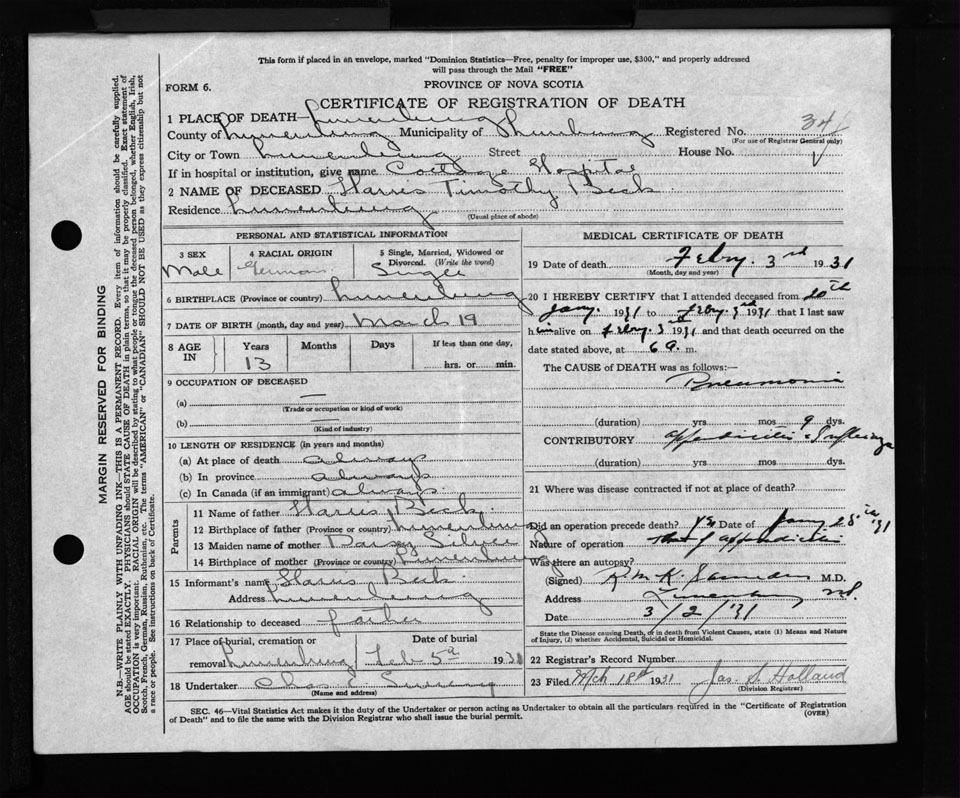 This form if placed in an envelope, marked "Dominion Statistics—Free, penalty for improper use, $300," and properly addressed
will pass through the Mail "FREE"
FORM 6.
PROVINCE OF NOVA SCOTIA
CERTIFICATE OF REGISTRATION OF DEATH
1 PLACE OF DEATH— Lunenburg
County of Lunenburg Municipality of Lunenburg Registered No. 34
(For use of Registrar General only)
City or Town Lunenburg Street House No.
If in hospital or institution, give name Cottage Hospital
2 NAME OF DECEASED Harris Timothy Beck
Residence Lunenburg
(Usual place of abode)
PERSONAL AND STATISTICAL INFORMATION
3 SEX 4 RACIAL ORIGIN 5 Single, Married, Widowed or
Divorced. (Write the word)
Male German Single
6 BIRTHPLACE (Province or country) Lunenburg
7 DATE OF BIRTH (month, day and year) March 19
8 AGE IN Years Months Days If less than one day,
13 hrs. or min.
9 OCCUPATION OF DECEASED
(a) —
(Trade or occupation or kind of work)
(b) —
(Kind of industry)
10 LENGTH OF RESIDENCE (in years and months)
(a) At place of death always
(b) In province always
(c) In Canada (if an immigrant) always
Parents
11 Name of father Harris Beck
12 Birthplace of father (Province or country) Lunenburg
13 Maiden name of mother Daisy Silver
14 Birthplace of mother (Province or country) Lunenburg
15 Informant's name Harris Beck
Address Lunenburg
16 Relationship to deceased father
17 Place of burial, cremation or Date of burial
removal Lunenburg Feb 5th 1931
18 Undertaker Chas
(Name and address)
MEDICAL CERTIFICATE OF DEATH
19 Date of death Febry. 3rd 1931
(Month, day and year)
20 I HEREBY CERTIFY that I attended deceased from 20th
Jany. 1931 to Febry 3rd 1931 that I last saw
him alive on Febry. 3rd 1931 and that death occurred on
date stated above, at 6 a. m.
The CAUSE of DEATH was as follows:—
Pneumonia
(duration) yrs mos 9 dys.
CONTRIBUTORY Appendicitis
(duration) yrs mos dys.
21 Where was disease contracted if not at place of death?
Did an operation precede death? yes Date of Jany 28th '31
Nature of operation that of appendicitis
Was there an autopsy?
(Signed) R. McK. Saunders M.D.
Address Lunenburg N.S.
Date 3/2/31
State the Disease causing Death, or in death from Violent Causes, state (1) Means and Nature
of Injury, (2) whether Accidental, Suicidal or Homicidal.
22 Registrar's Record Number
23 Filed Mch 18th 1931 Jas. S. Holland
(Division Registrar)
SEC. 46—Vital Statistics Act makes it the duty of the Undertaker or person acting as Undertaker to obtain all the particulars required in the "Certificate of Registration
of Death" and to file the same with the Division Registrar who shall issue the burial permit.
(OVER)
MARGIN RESERVED FOR BINDING
N.B.—WRITE PLAINLY WITH UNFADING INK—THIS IS A PERMANENT RECORD. Every item of information should be carefully supplied.
AGE should be stated EXACTLY. PHYSICIANS should STATE CAUSE OF DEATH in plain terms, so that it may be properly classified. Exact statement of
OCCUPATION is very important. RACIAL ORIGIN will be described by stating to what people or tongue the deceased person belonged, whether English, Irish,
Scotch, French, German, Russian, Ruthenian, etc. The terms "AMERICAN" or "CANADIAN" SHOULD NOT BE USED as they express citizenship but not
a race or people. See instructions on back of Certificate.